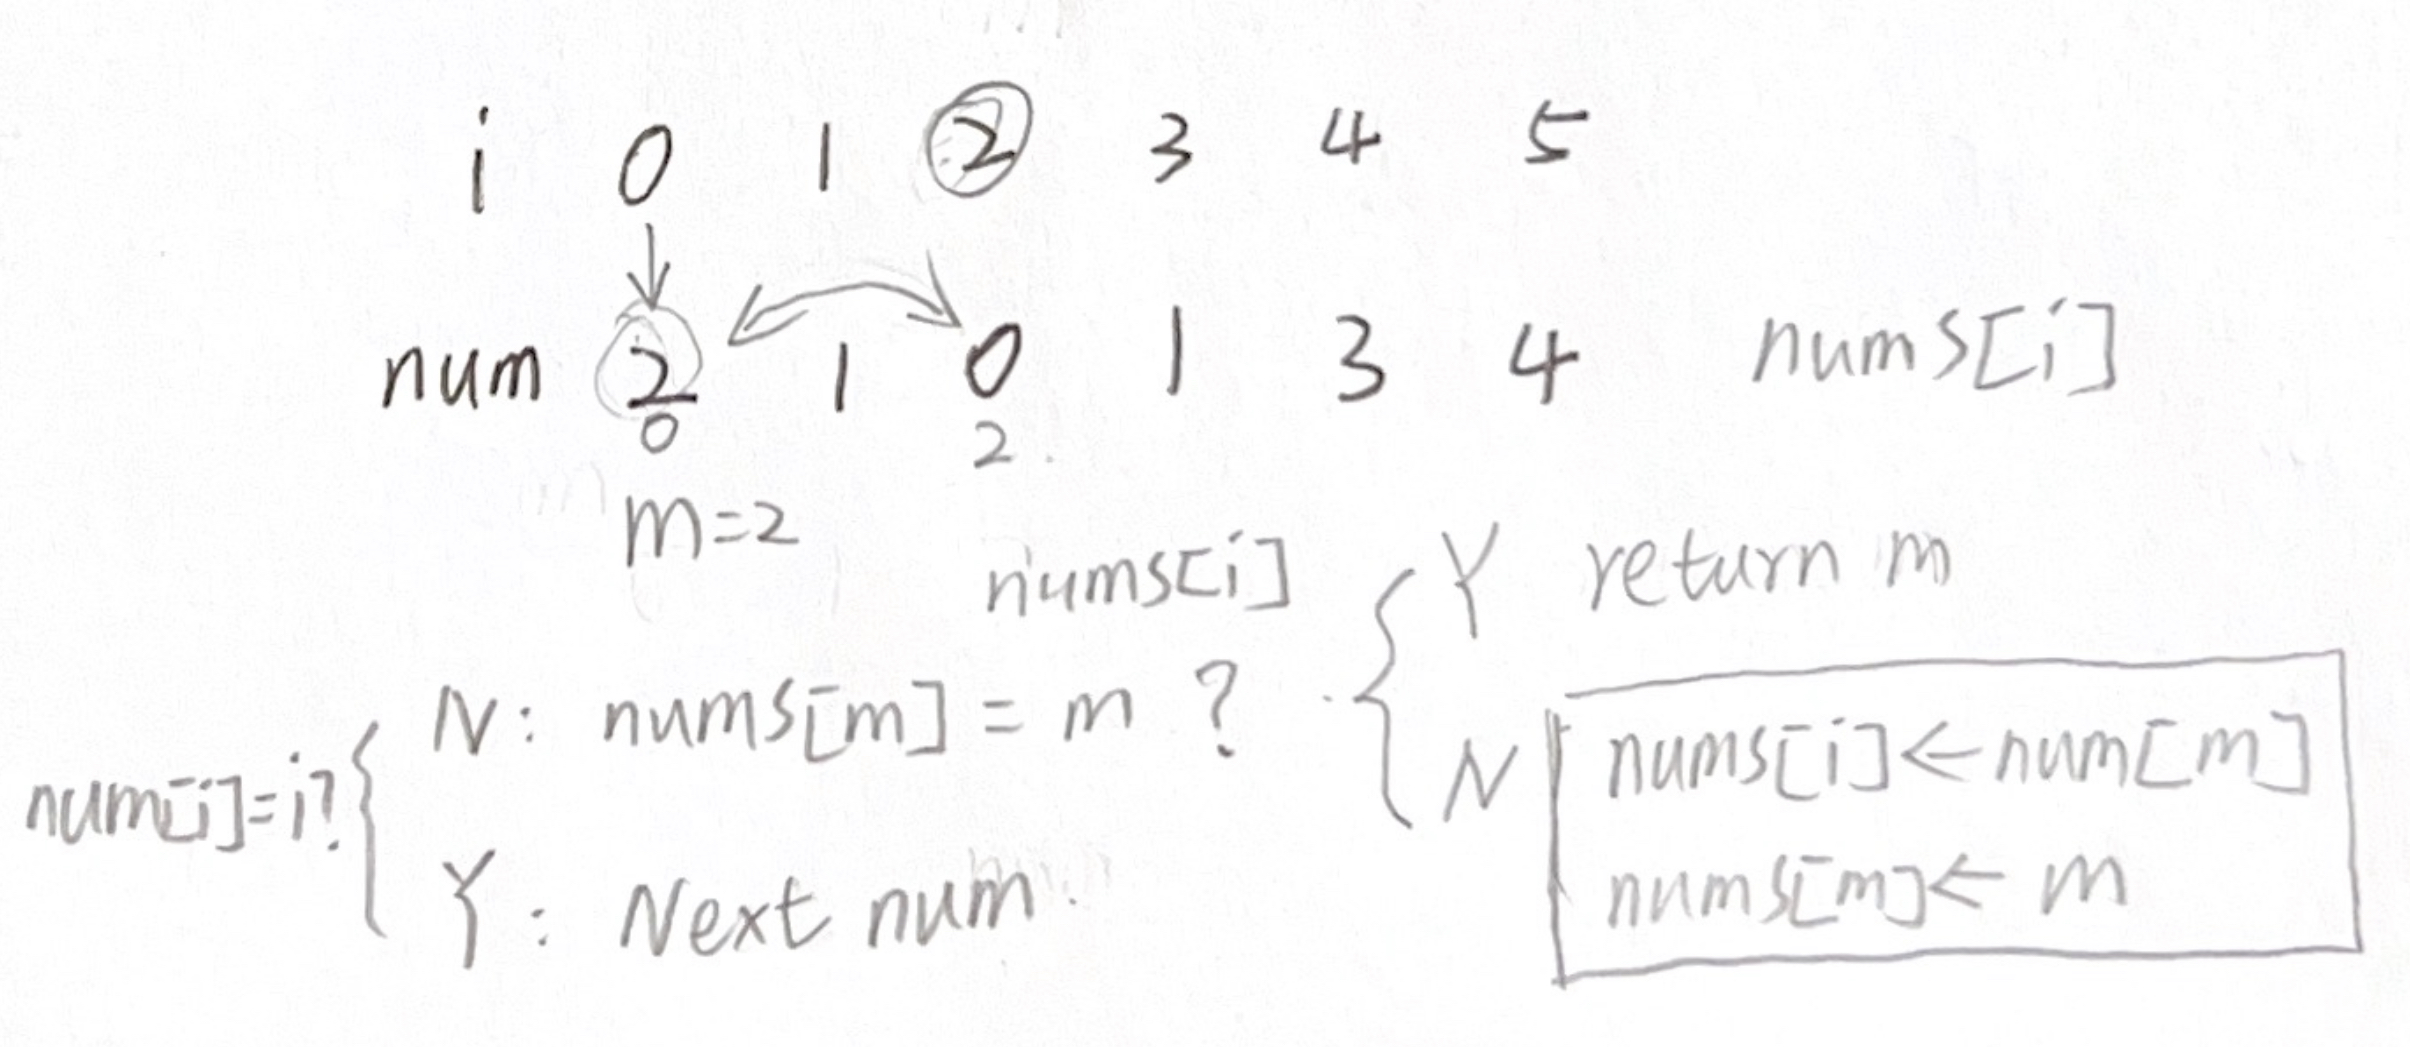 i 0 1 2 3 4 5
num 2 1 0 1 3 4 nums[i]
0 2
m=2
nums[i] Y return m
N: nums[m] = m ?
N nums[i]←num[m]
num[i]=i?
nums[m]← m
Y: Next num.